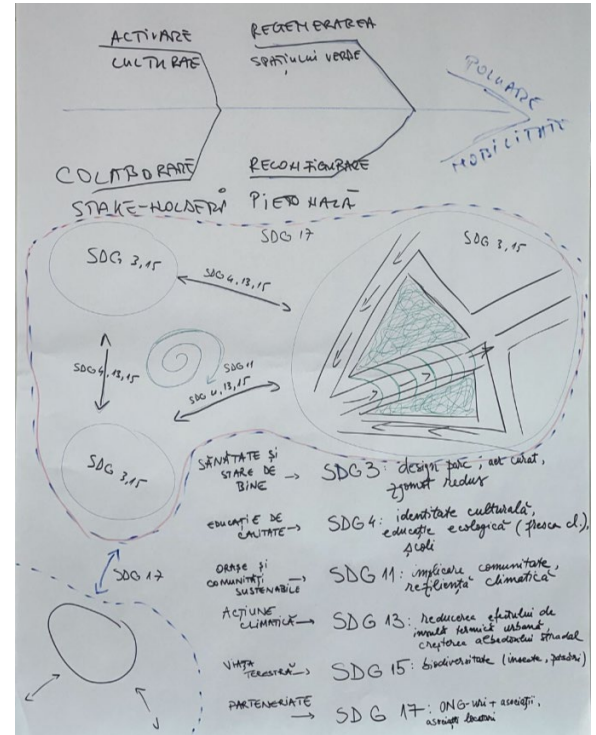 ACTIVARE
CULTURAE
REGENERAREA
SPAȚIULUI VERDE
POLUARE
MOBILITATE
COLABORARE
STAKE-HOLDERI
RECONFIGURARE
PIETONALĂ
SDG 17
SDG 3,15
SDG 3,15
SDG 4,13,15
SDG 4,13,15
SDG 11
SDG 4,13,15
SDG 3,15
SDG 17
SĂNĂTATE ȘI
STARE DE
BINE → SDG 3: design parc, aer curat,
zgomot redus
EDUCAȚIE DE
CALITATE → SDG 4: identitate culturală,
educație ecologică (fresca cl.),
școli
ORAȘE ȘI
COMUNITĂȚI
SUSTENABILE → SDG 11: implicare comunitate,
reziliență climatică
ACȚIUNE
CLIMATICĂ → SDG 13: reducerea efectului de
insulă termică urbană,
creșterea albedoului stradal
VIAȚA
TERESTRĂ → SDG 15: biodiversitate (insecte, păsări)
PARTENERIATE → SDG 17: ONG-uri + asociații,
asociații locatari